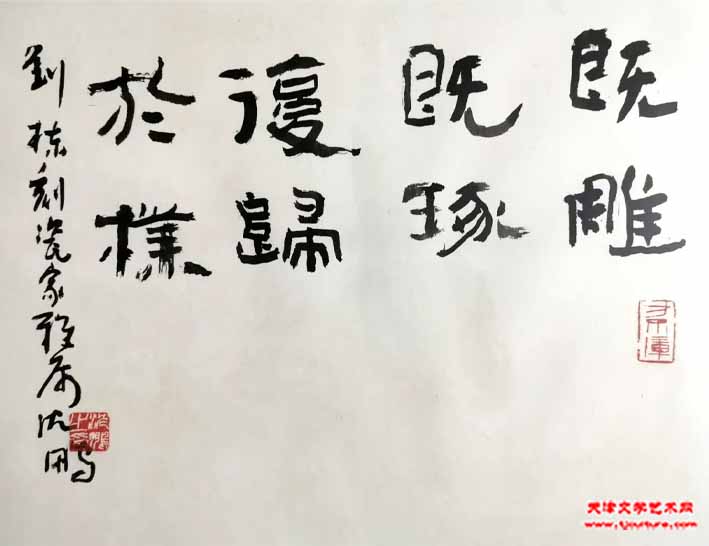 既雕
既琢
復歸
於樸
劉棟刻瓷家雅屬沈鹏
天津文学艺术网
www.tjculture.com